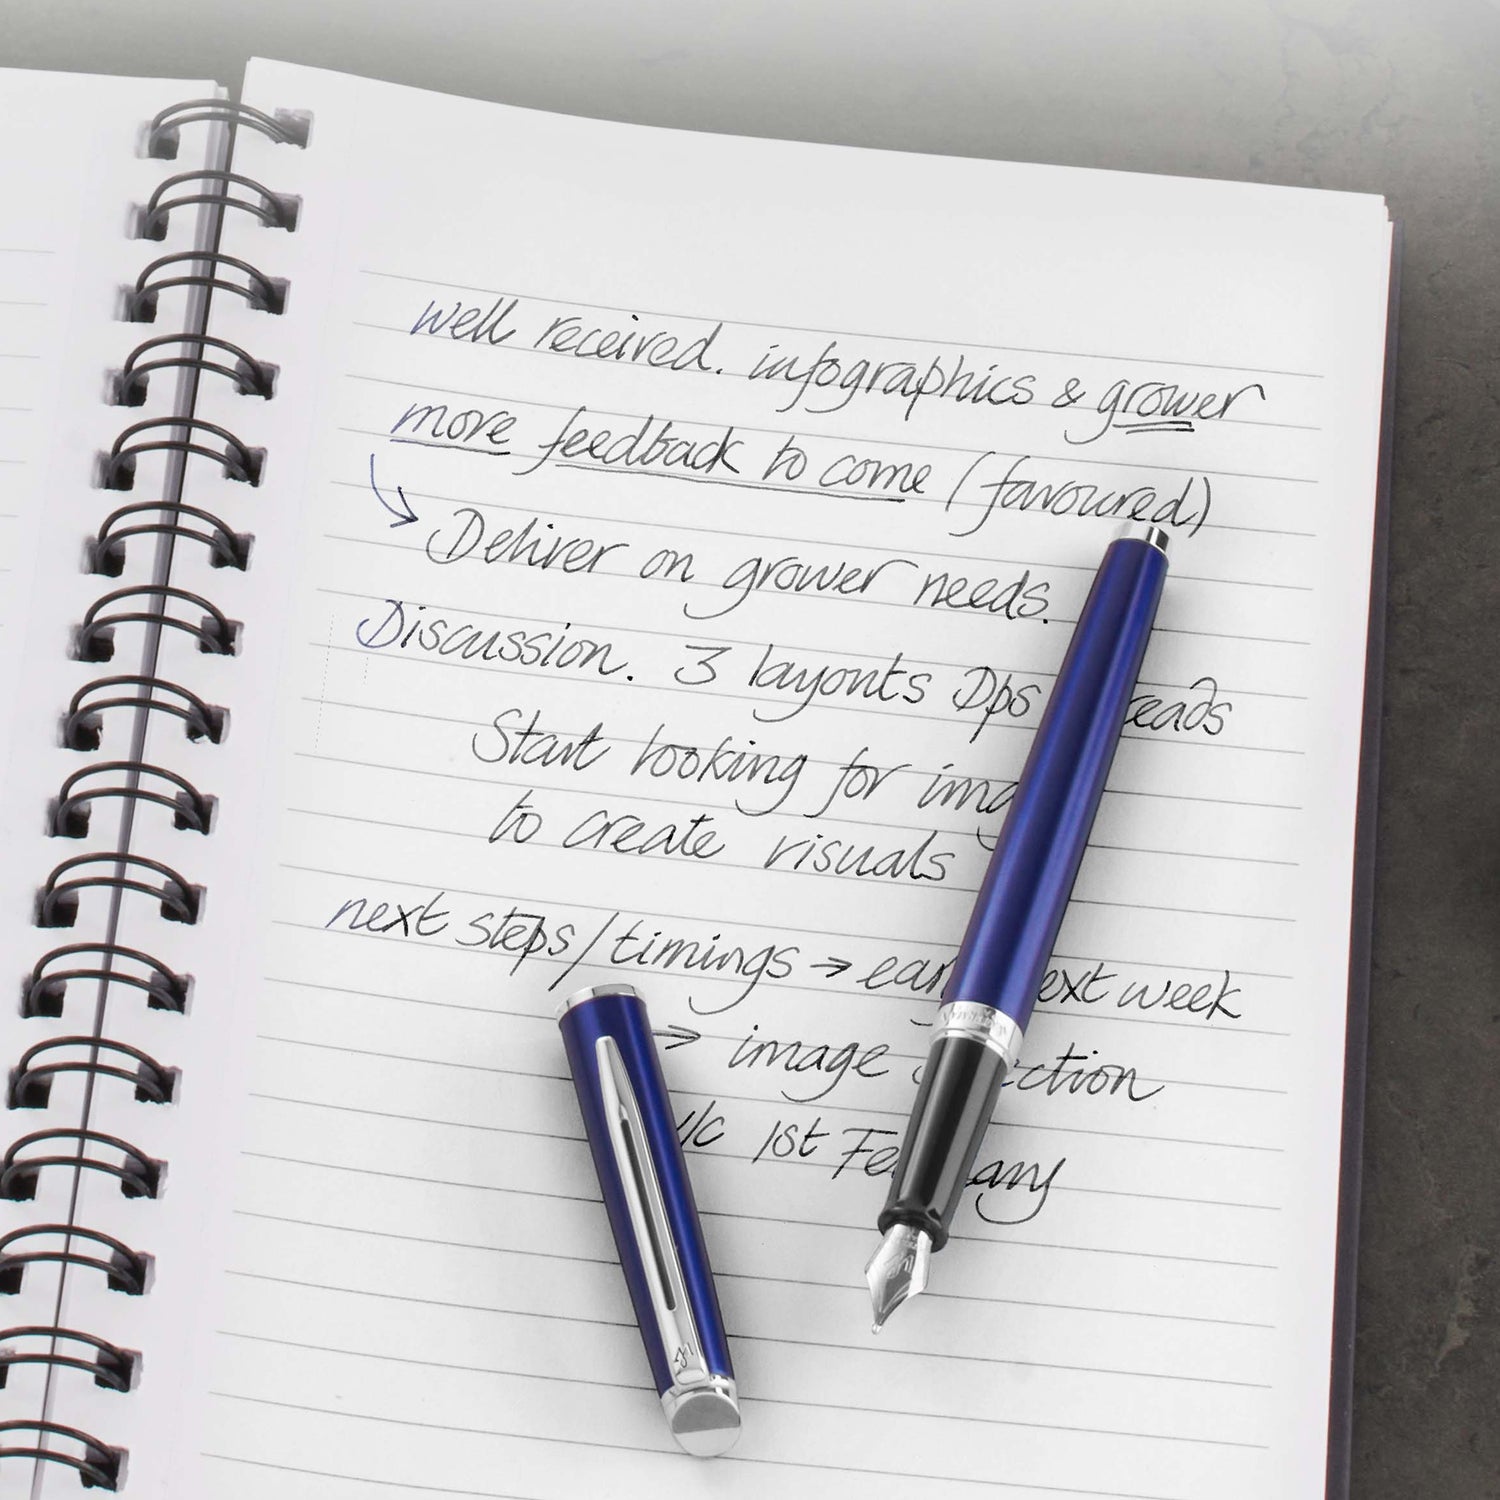 well received. infographics & grower
more feedback to come (favoured)
Deliver on grower needs.
Discussion. 3 layouts Dps
Start looking for
to create visuals
next steps/timings → week
→ image
1st